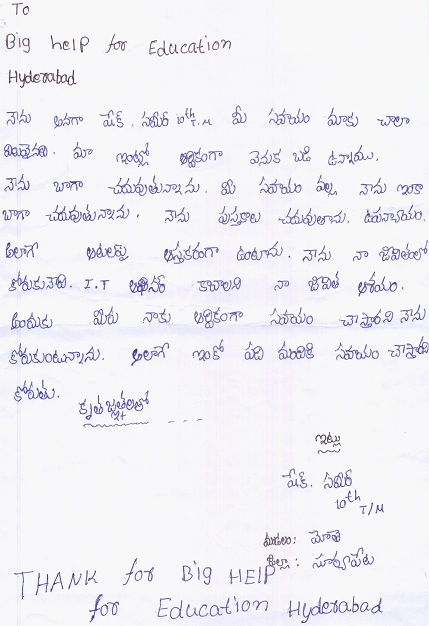 To
Big help for Education
Hyderabad
నేను అనగా షేక్. సమీర్ 10th T.M మీ సహాయం మాకు చాలా
మా ఇంట్లో ఆర్థికంగా వెనుక బడి ఉన్నాము.
నేను బాగా చదువుతున్నాను. మీ సహాయం వల్ల నేను ఇంకా
బాగా చదువుతున్నాను. నేను పుస్తకాలు చదువుతాను.
అలాగే ఆటలపై ఉంటాను. నేను నా జీవితంలో
I.T ఆఫీసర్ కావాలని నా జీవిత ఆశయం.
అందుకు మీరు నాకు ఆర్థికంగా సహాయం చేస్తారని నేను
కోరుకుంటున్నాను. అలాగే ఇంకో పది మందికి సహాయం చేస్తారని
కోరుతు. కృతజ్ఞతలతో
ఇట్లు
షేక్. సమీర్
10th T/M
మండలం: మోతె
జిల్లా: సూర్యాపేట
THANK for Big HELP
for Education Hyderabad